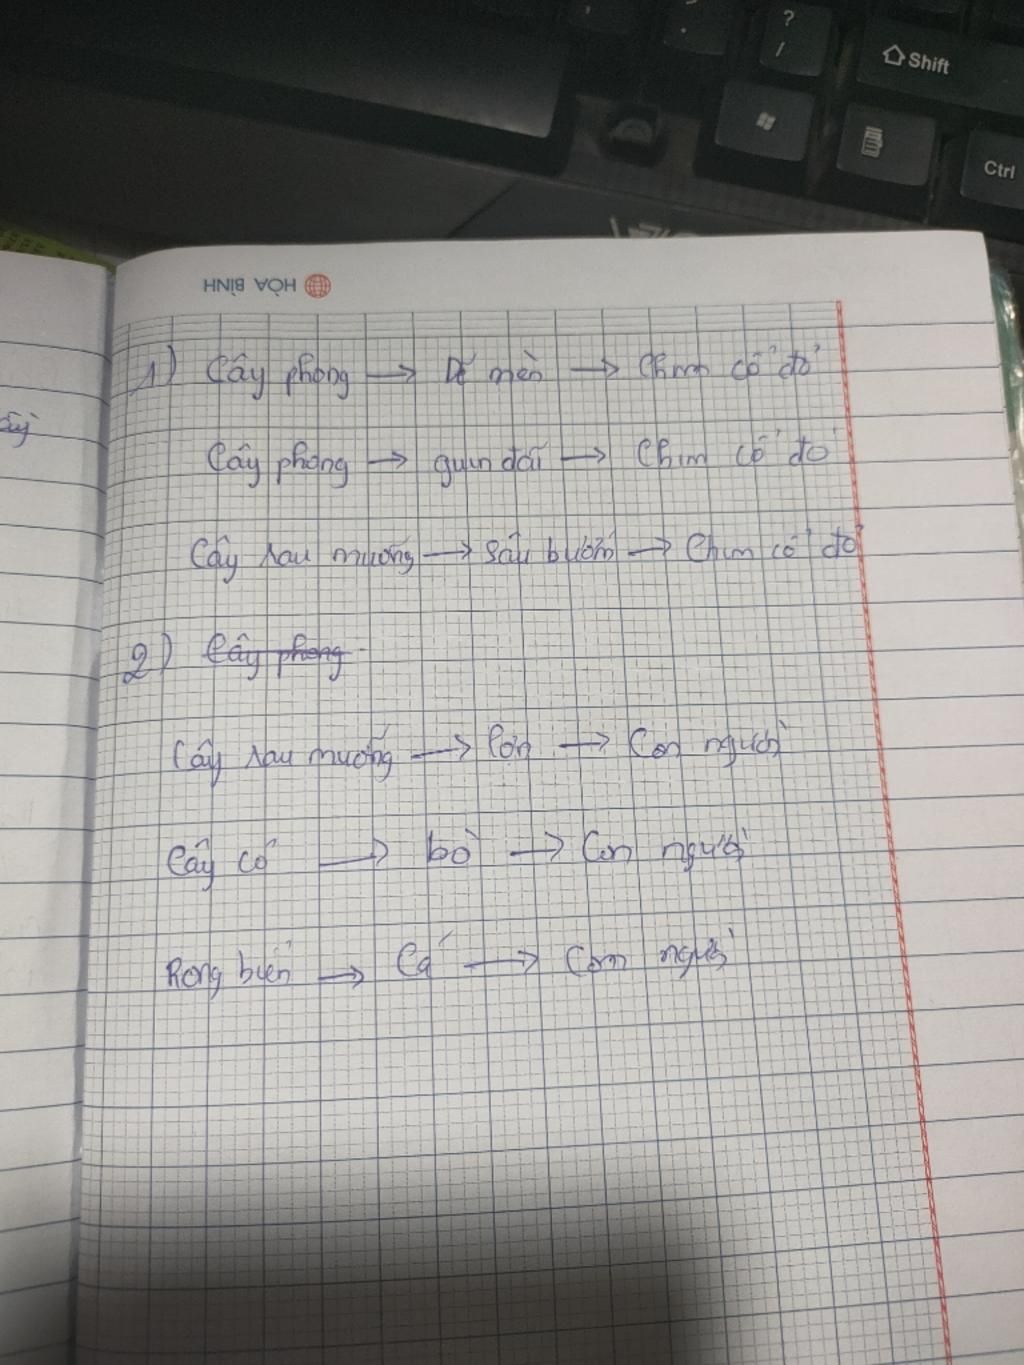 ?
/
Shift
Ctrl
HÒA BÌNH
1) Cây phong → Dế mèn → Chim cổ đỏ
Cây phong → giun đất → Chim cổ đỏ
Cây rau muống → Sâu bướm → Chim cổ đỏ
2) Cây phong
Cây rau muống → lợn → Con người
Cây cỏ → bò → Con người
Rong biển → Cá → Con người